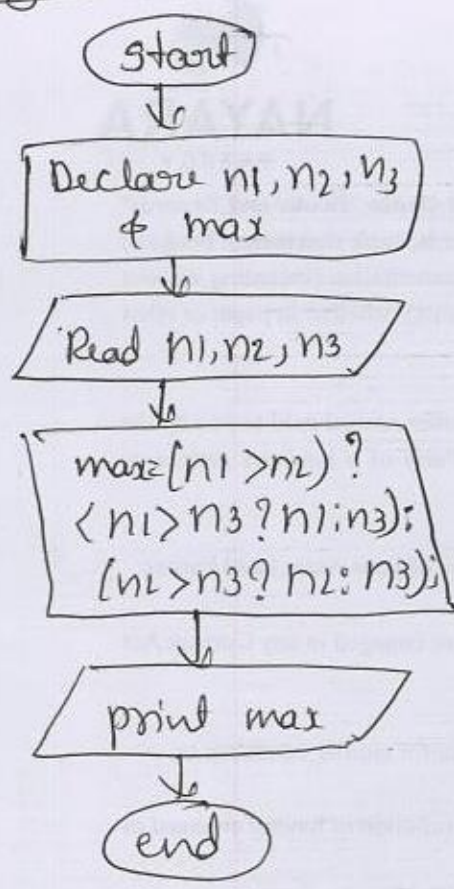 start
Declare n1, n2, n3
& max
Read n1, n2, n3
max=(n1>n2)?
(n1>n3?n1:n3):
(n2>n3?n2:n3);
print max
end